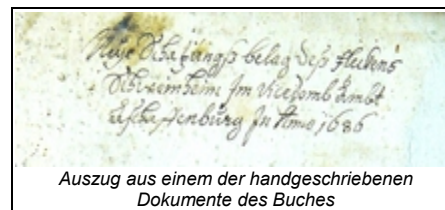 Neüe Schatzungß belag deß fleckens
Schweinheim Jm Vicedomb Ambt
Aschaffenburg Jn Anno 1686
Auszug aus einem der handgeschriebenen
Dokumente des Buches